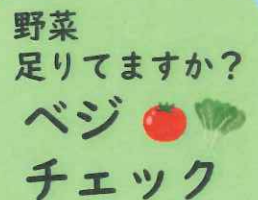 野菜
足りてますか？
ベジ
チェック